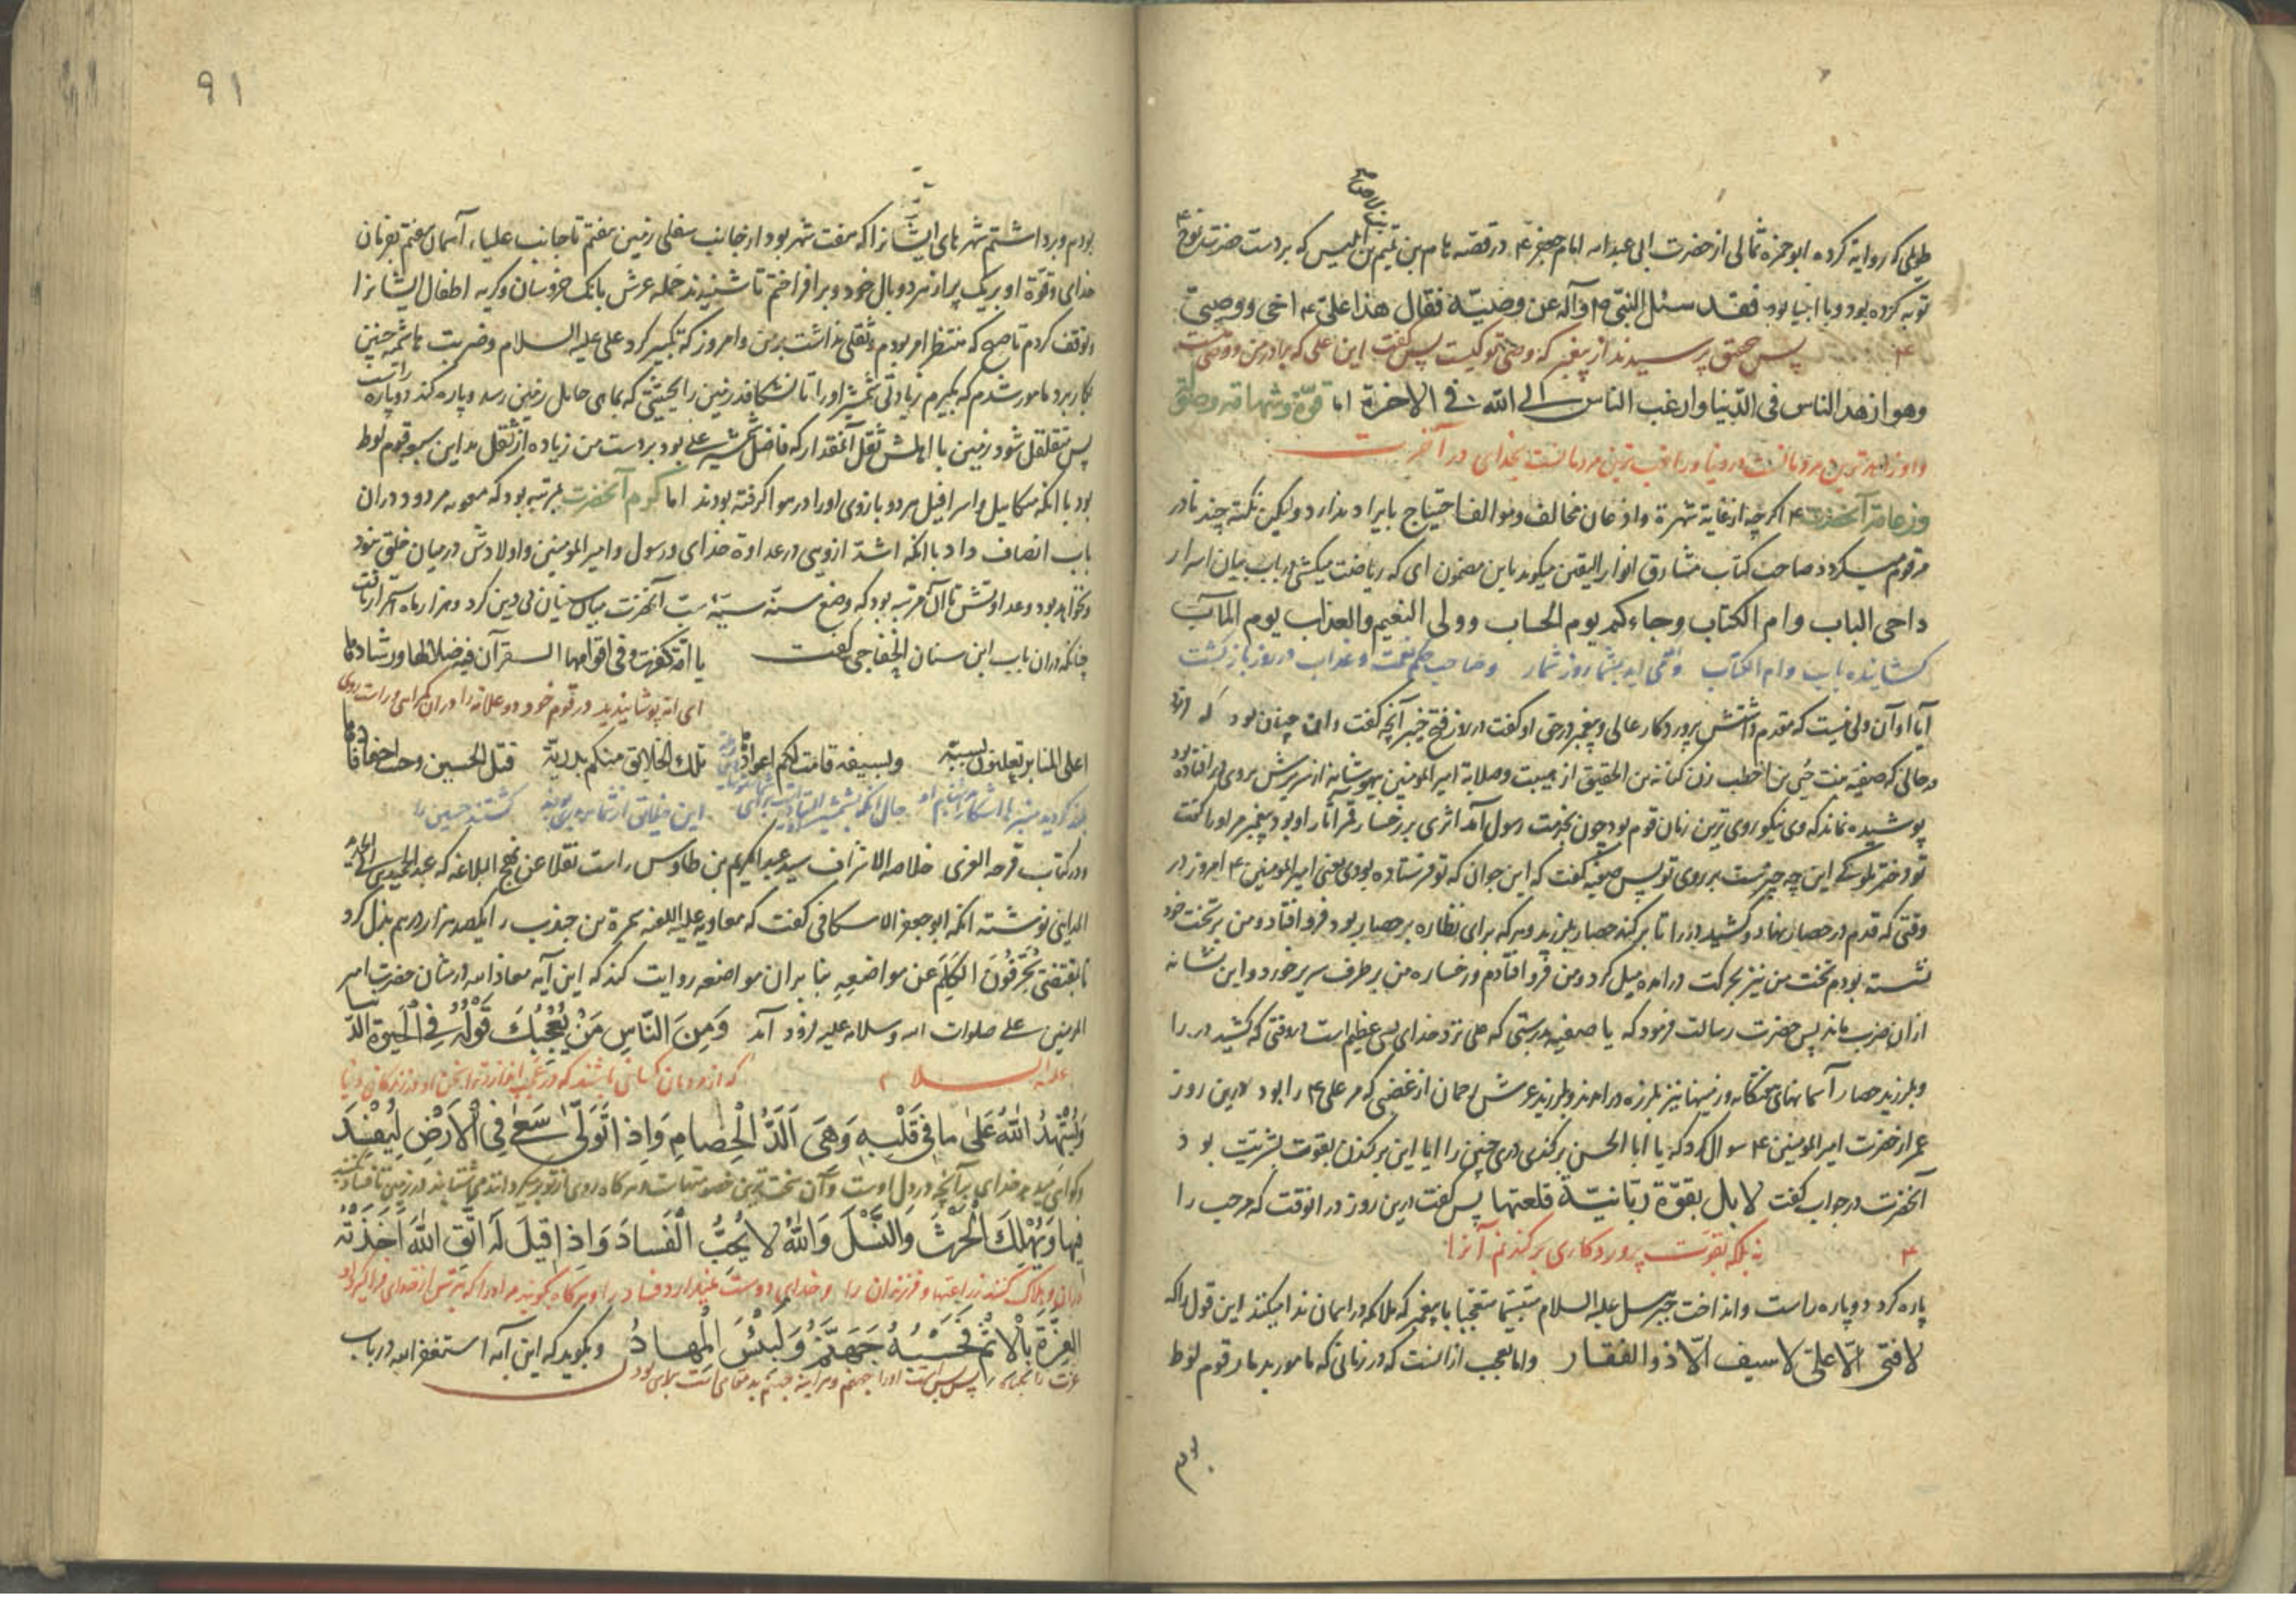 طویلی که روایة کرده ابو حمزه ثمالی از حضرت ابی عبد الله امام جعفر ع در قصه هام بن هیم بن ابلیس که بر دست حضرت نوح ع
توبه کرده بود و با انبیا بود فقد سئل النبی ص و آله عن وصیّه فقال هذا علی ع اخی ووصیی
پس بحق پرسیدند از پیغمبر که وصی تو کیست پس گفت این علی که برادر من و وصی منست
وهو ازهد الناس فی الدّنیا وارغب الناس الی الله فی الاخرة اما قوّة وشهامة
و او زاهد ترین مردمانست در دنیا و راغب ترین مردمانست بخدای در آخرت
آنحضرت ع اگرچه از غایة شهرة و اذعان مخالف و موالف احتیاج بایراد ندارد ولیکن نکته چند نادر
مرقوم میگردد صاحب کتاب مشارق انوار الیقین میگوید باین مضمون ای که ریاضت میکشی در باب بیان اسرار
داحی الباب وام الکتاب وجاءکم یوم الحساب وولی النعیم والعذاب یوم المآب
گشاینده باب وام الکتاب روز شمار وصاحب حکم نعمت وعذاب در روز بازگشت
آیا او آن ولی نیست که پروردگار عالی و پیغمبر در حق او گفت در روز فتح خیبر آنچه گفت و آن چنان بود که
در حالی که صفیه بنت حیی بن اخطب زن کنانه بن الحقیق از هیبت وصلابة امیر المومنین بیهوشانه از سریرش بروی در افتاده
پوشیده نماند که وی نیکو روی ترین زنان قوم بود چون بخدمت رسول آمد اثری بر رخسار او بود پیغمبر مر او را گفت
تو دختر ملوکی این چه چیزست بر روی تو پس صفیه گفت که این جوان که تو فرستاده بودی یعنی امیر المومنین ع امروز در
وقتی که قدم در حصار نهاد و کشید در را تا بر کند حصار بلرزید و هر که برای نظاره بر حصار بود فرو افتاد و من بر تخت خود
نشسته بودم تخت من نیز بحرکت درآمده میل کرد و من فرو افتادم و رخساره من بر طرف سریر خورد و این نشانه
از ان ضرب ماند پس حضرت رسالت فرمود که یا صفیه بدرستی که علی نزد خدای بسی عظیم است در وقتی که کشید در را
وبلرزید حصار آسمانهای هفتگانه و زمینها نیز بلرزه درآمد و بلرزید عرش رحمان از غضبی که مر علی ع را بود در این روز
عمر از حضرت امیر المومنین ع سوال کرد که یا ابا الحسن بر کندی دری چنین را ایا این بر کندن بقوت بشریت بود
آنحضرت در جواب گفت لا بل بقوّة ربّانیّة قلعتها پس گفت در این روز در انوقت که مرحب را
نه بلکه بقوت پروردگاری بر کندم آنرا
پاره کرد دو پاره راست و انداخت جبرئیل علیه السلام متبسّما متعجّبا با پیغمبر که ملائکه در آسمان ندا میکنند این قول را که
لا فتی الّا علی لا سیف الّا ذو الفقار و اما تعجب از آنست که در زمانی که مامور بدمار قوم لوط
بودم
۹۱
بودم و برداشتم شهرهای ایشانرا که هفت شهر بود از جانب سفلی زمین هفتم تا جانب علیاء آسمان هفتم بفرمان
خدای و قوّة او بر یک پر از هر دو بال خود و بر افراختم تا شنیدند حمله عرش بانک خروسان و گریه اطفال ایشانرا
و توقف کردم تا صبح که منتظر امر بودم و ثقلی نداشت بر من و امروز که تکبیر کرد علی علیه السلام و ضربت هاشمیه چنین
بکار برد مامور شدم که بگیرم زیادتی شمشیر او را تا نشکافد زمین را بحیثیتی که بماهی حامل زمین رسد و پاره کند دو پاره راست
پس متقلقل شود زمین با اهلش ثقل آنمقدار که فاضل شمشیر علی بود بر دست من زیاده از ثقل مداین سبعه قوم لوط
بود با آنکه میکائیل و اسرافیل هر دو بازوی او را در هوا گرفته بودند اما کرم آنحضرت بمرتبه بود که معویه مردود در ان
باب انصاف داد با آنکه اشدّ ازوی در عداوة خدای و رسول و امیر المومنین و اولادش در میان خلق نبود
ونخواهد بود و عداوتش تا آن مرتبه بود که وضع سنّة سیّئة سبّ آنحضرت میان سنیان بی دین کرد و هزار ماه
چنانکه در ان باب ابن سنان الخفاجی گفت یا امّة کفرت وفی افواهها القرآن فیه ضلالها ورشادها
ای امة در قوم خود
اعلی المنابر تعلنون بسبّه وبسیفه قامت لکم اعوادها تلک الخلائق منکم بدریّة قتل الحسین وما خبت احقادها
کشتند حسین را
ودر کتاب فرحة الغری خلاصه الاشراف سید عبد الکریم بن طاوس راست نقلا عن نهج البلاغه که عبد الحمید بن ابی الحدید
المداینی نوشته آنکه ابو جعفر الاسکافی گفت که معاویه علیه اللعنه سمرة بن جندب را یکصد هزار درهم بذل کرد
تا بمقتضی یُحَرِّفُونَ الکَلِمَ عن مواضعِهِ بنا بر ان مواضعه روایت کند که این آیه معاذ الله در شان حضرت امیر
المومنین علی صلوات الله وسلامه علیه فرود آمد وَمِنَ النّاسِ مَنْ یُعْجِبُکَ قَوْلُهُ فِی الْحَیوةِ الدُّنیا
علیه السلام که از مردمان کسانی باشند که در زندگانی دنیا
وَیُشْهِدُ اللهَ عَلی ما فی قَلْبِهِ وَهُوَ اَلَدُّ الْخِصامِ وَاِذا تَوَلّی سَعی فِی الْاَرْضِ لِیُفْسِدَ
بر آنچه در دل اوست و آن سخت ترین
فیها وَیُهْلِکَ الْحَرْثَ وَالنَّسْلَ وَاللهُ لا یُحِبُّ الْفَسادَ وَاِذا قیلَ لَهُ اتَّقِ اللهَ اَخَذَتْهُ
در ان وهلاک کند زراعتها و فرزندان را و خدای دوست نمیدارد فساد را و هر گاه بگویند مر او را که بترس از خدای
الْعِزَّةُ بِالْاِثْمِ فَحَسْبُهُ جَهَنَّمُ وَلَبِئْسَ الْمِهادُ وبگوید که این آیه استغفر الله در باب
پس بس است او را جهنم